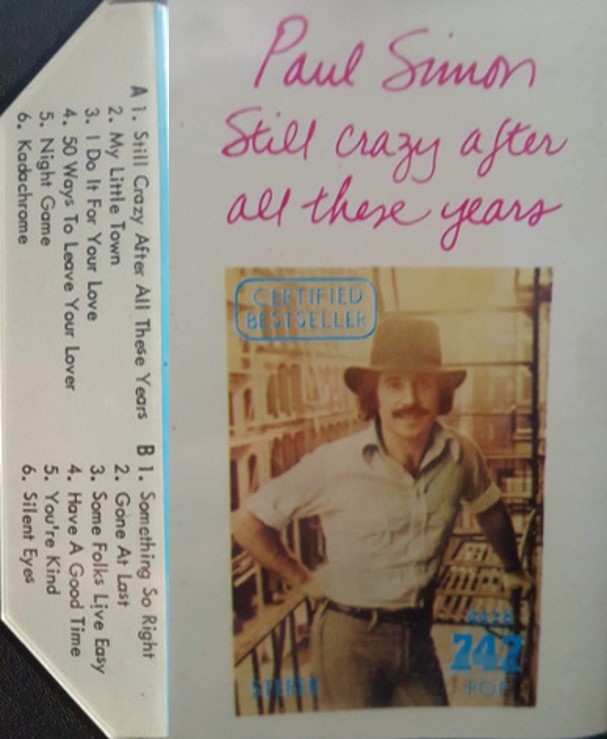 Paul Simon
Still crazy after
all these years
CERTIFIED
BESTSELLER
242
STEREO
POP
A 1. Still Crazy After All These Years
2. My Little Town
3. I Do It For Your Love
4. 50 Ways To Leave Your Lover
5. Night Game
6. Kodachrome
B 1. Something So Right
2. Gone At Last
3. Some Folks Live Easy
4. Have A Good Time
5. You're Kind
6. Silent Eyes